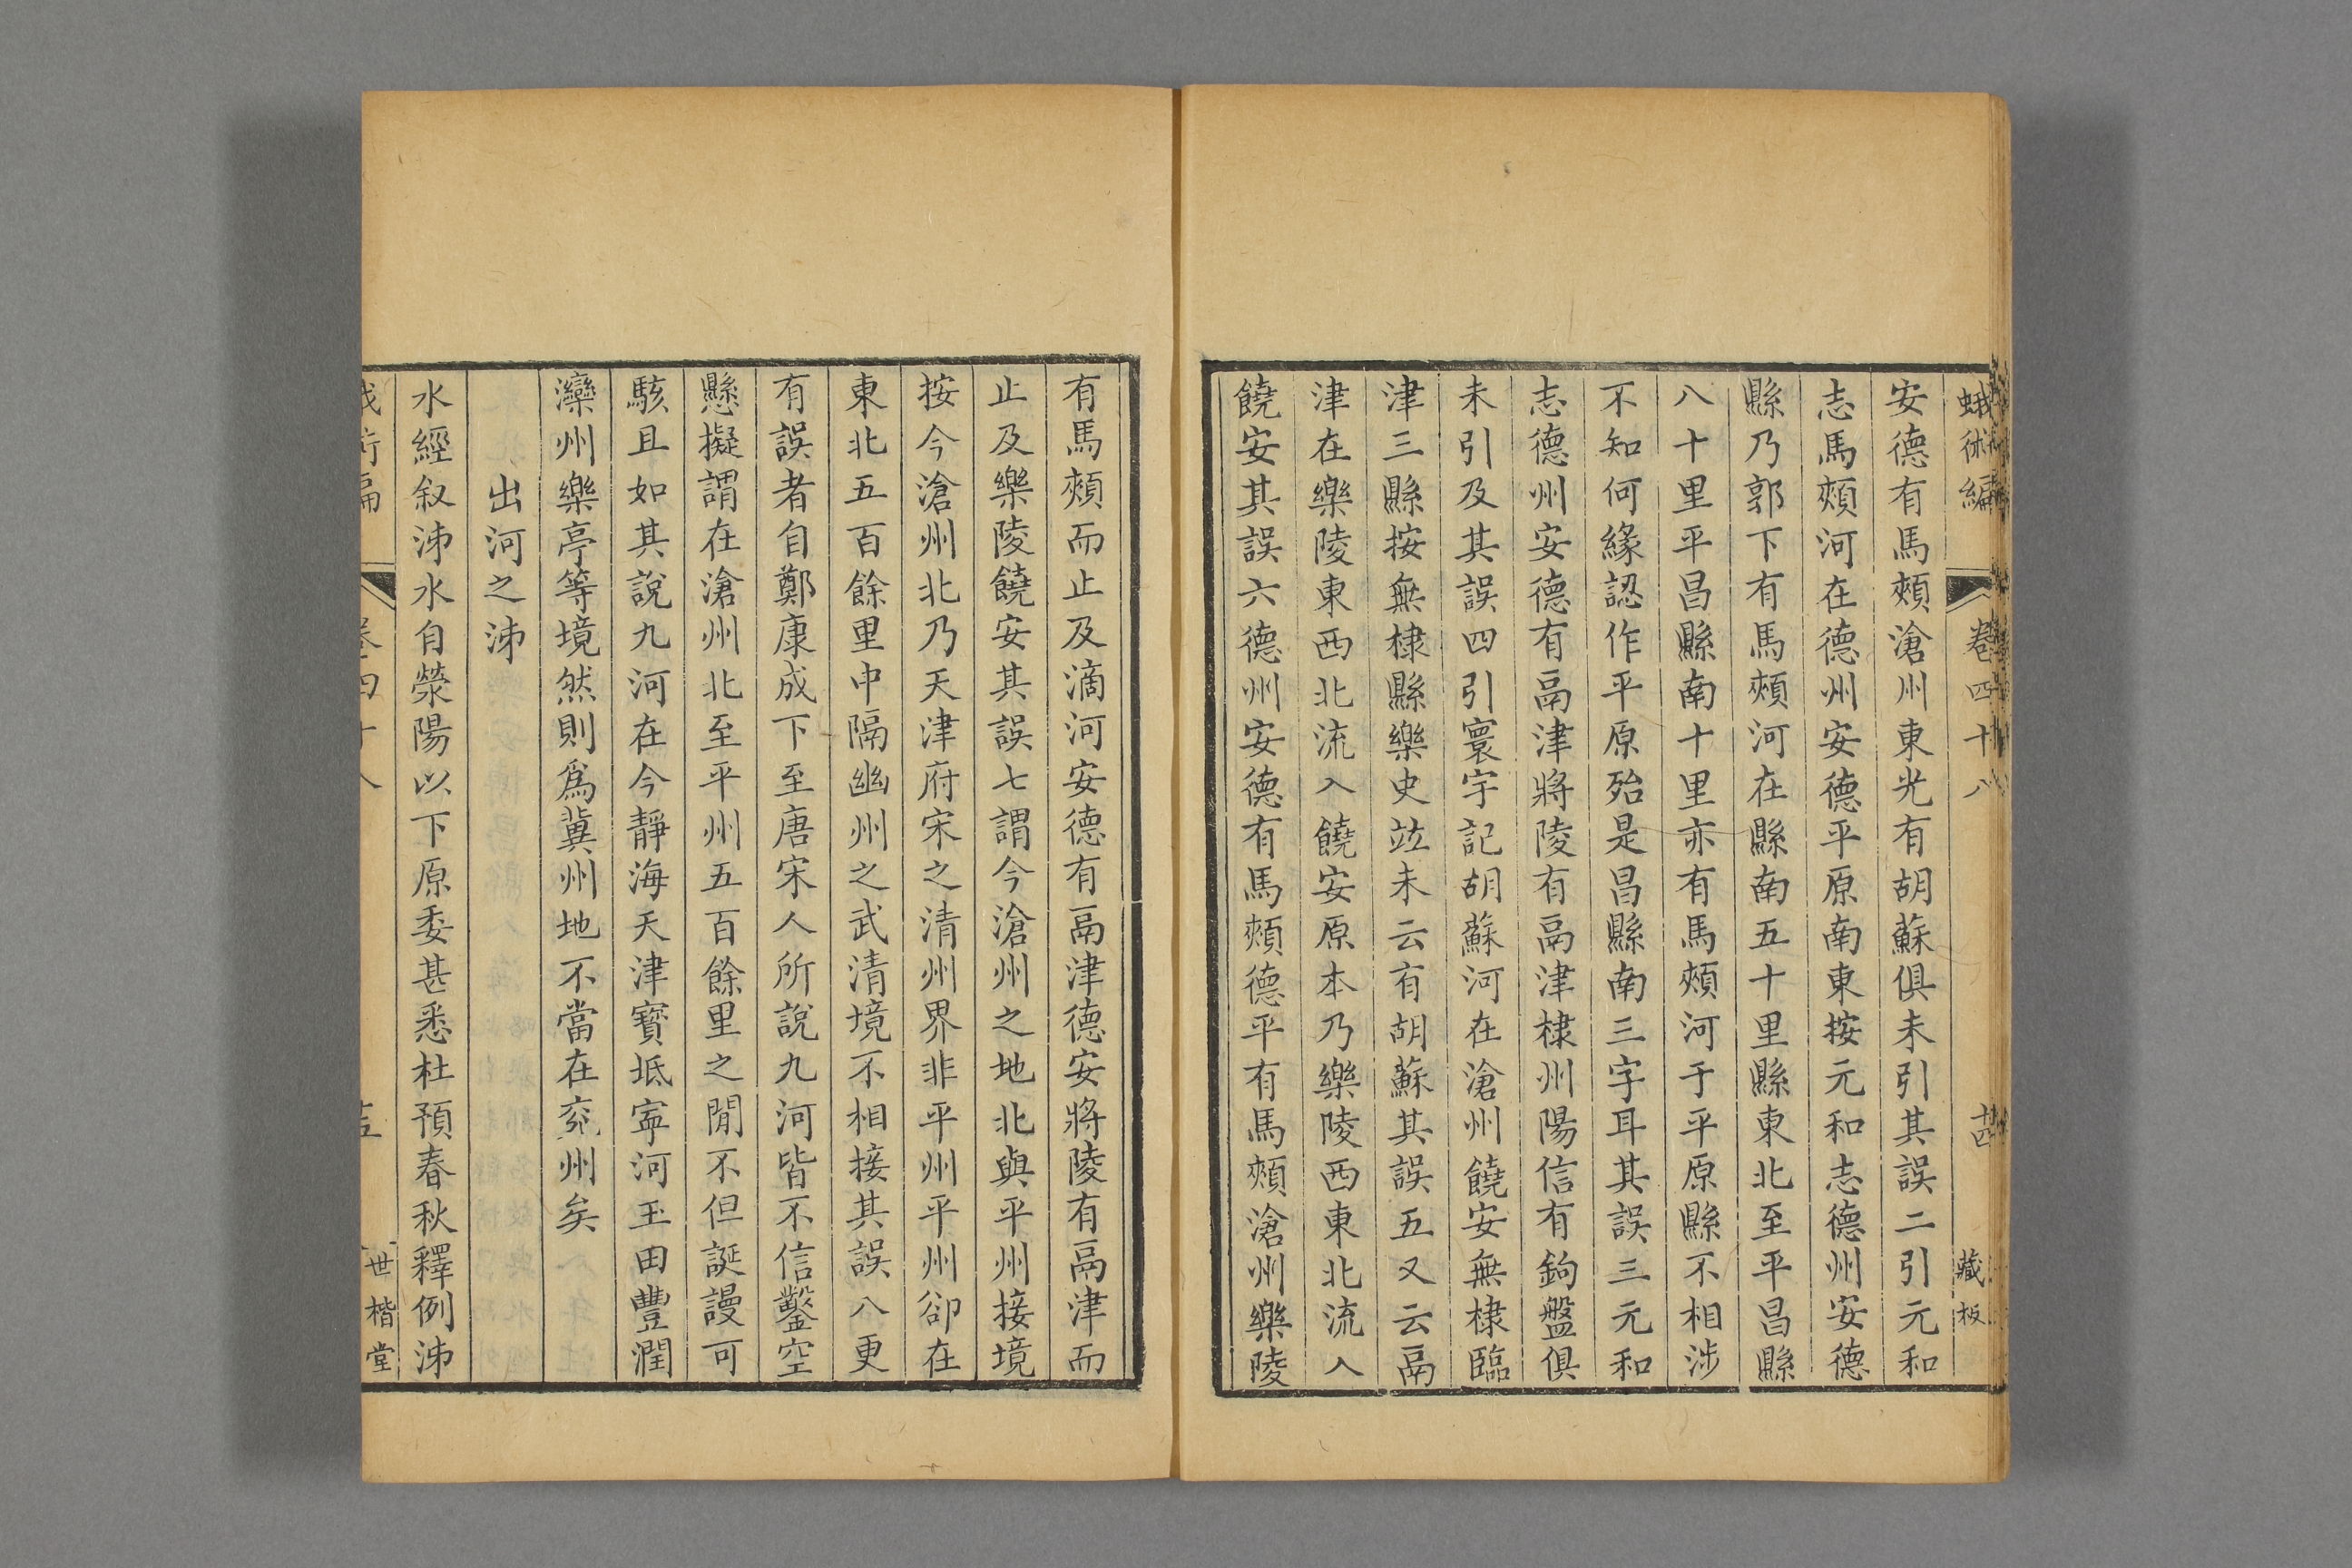 蛾術編 卷四十八 十四 藏板
安德有馬頰滄州東光有胡蘇俱未引其誤二引元和
志馬頰河在德州安德平原南東按元和志德州安德
縣乃郭下有馬頰河在縣南五十里縣東北至平昌縣
八十里平昌縣南十里亦有馬頰河于平原縣不相涉
不知何緣認作平原殆是昌縣南三字耳其誤三元和
志德州安德有鬲津將陵有鬲津棣州陽信有鉤盤俱
未引及其誤四引寰宇記胡蘇河在滄州饒安無棣臨
津三縣按無棣縣樂史竝未云有胡蘇其誤五又云鬲
津在樂陵東西北流入饒安原本乃樂陵西東北流入
饒安其誤六德州安德有馬頰德平有馬頰滄州樂陵
有馬頰而止及滴河安德有鬲津德安將陵有鬲津而
止及樂陵饒安其誤七謂今滄州之地北與平州接境
按今滄州北乃天津府宋之清州界非平州平州卻在
東北五百餘里中隔幽州之武清境不相接其誤八更
有誤者自鄭康成下至唐宋人所說九河皆不信鑿空
懸擬謂在滄州北至平州五百餘里之閒不但誕謾可
駭且如其說九河在今靜海天津寶坻寧河玉田豐潤
灤州樂亭等境然則爲冀州地不當在兖州矣
出河之泲
水經叙泲水自滎陽以下原委甚悉杜預春秋釋例泲
蛾術編 卷四十八 世楷堂